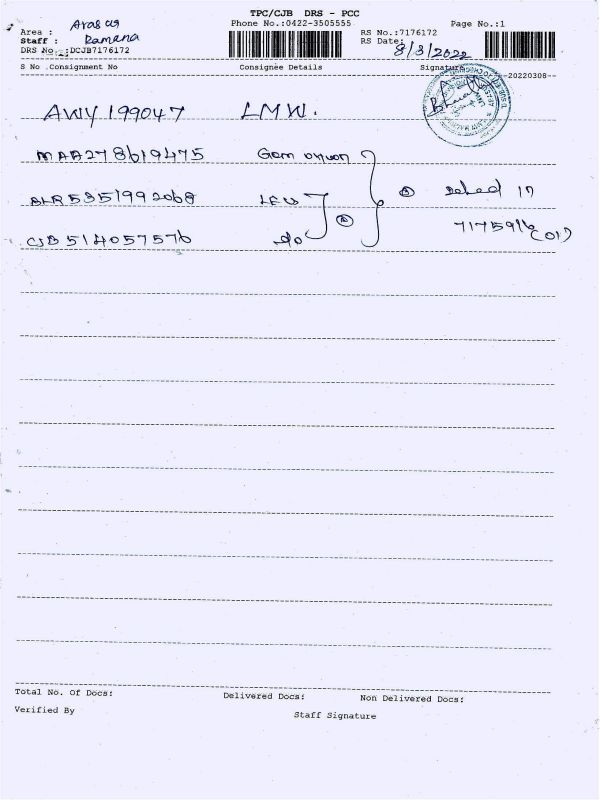 TPC/CJB DRS - PCC
Phone No.:0422-3505555 Page No.:1
Area : Arasur RS No.:7176172
Staff : Ramana RS Date: 8/3/2022
DRS No.:DCJB7176172
S No Consignment No Consignee Details Signature 20220308
AWY 199047 LMW.
MAA278619475
BLR5351992068
CJB514057576 do
Total No. Of Docs: Delivered Docs: Non Delivered Docs:
Verified By Staff Signature